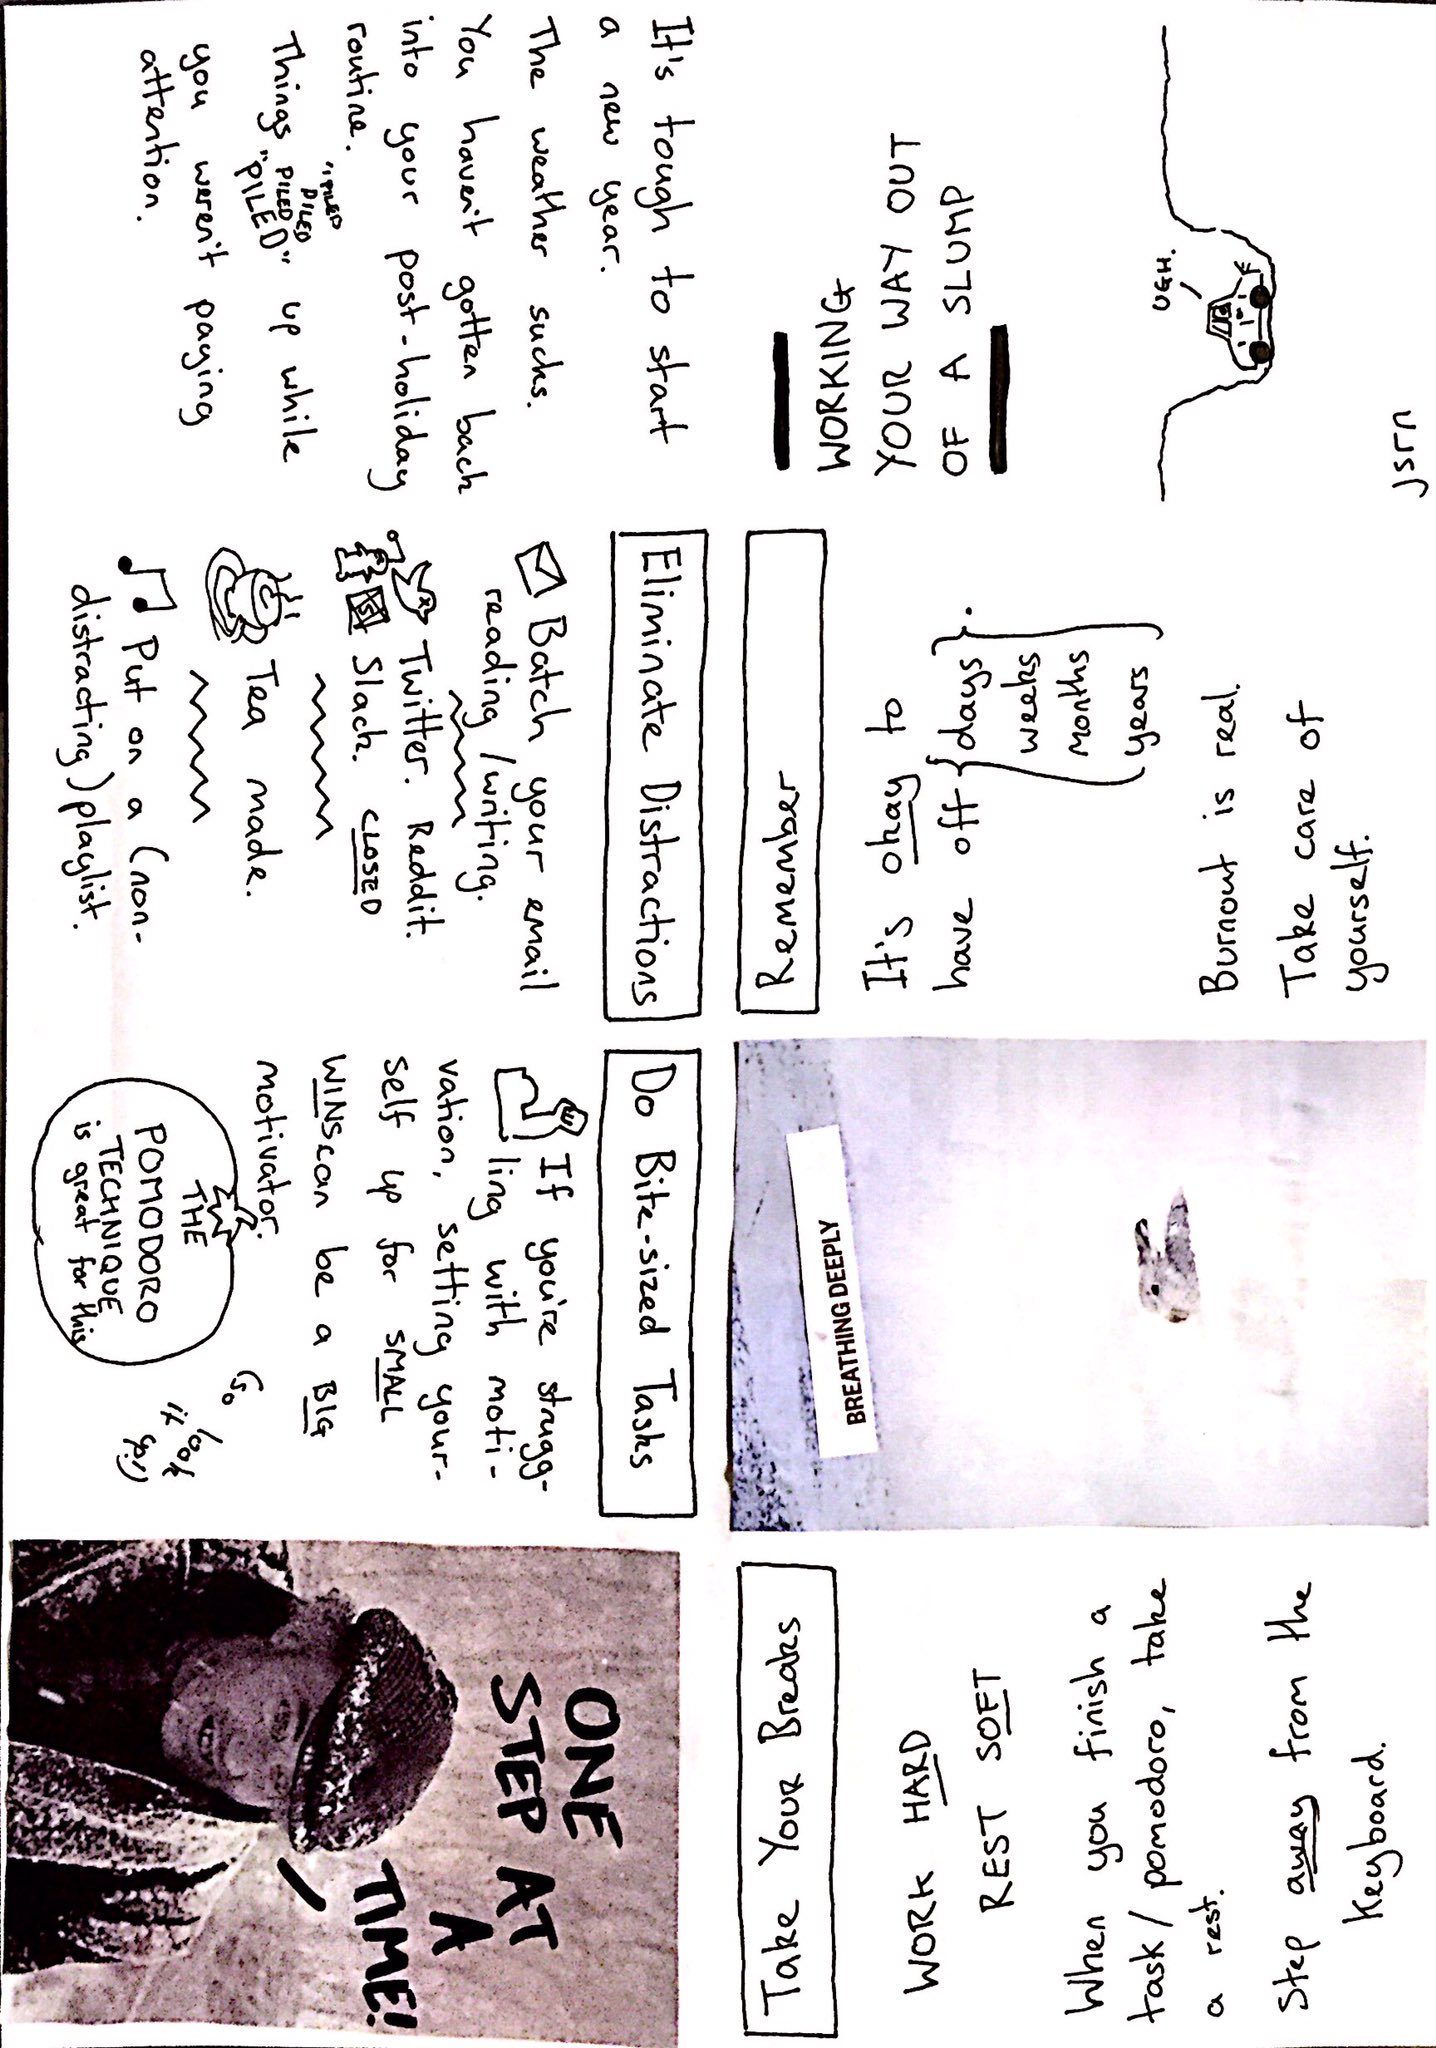 WORKING
YOUR WAY OUT
OF A SLUMP
UGH.
jsrn
It's tough to start
a new year.
The weather sucks.
You haven't gotten back
into your post-holiday
routine.
"PILED
PILED
PILED
Things "PILED" up while
you weren't paying
attention.
Eliminate Distractions
Batch your email
reading/writing.
Twitter. Reddit.
Slack. CLOSED
Tea made.
Put on a (non-
distracting) playlist.
Do Bite-sized Tasks
If you're strugg-
ling with moti-
vation, setting your-
self up for SMALL
WINS can be a BIG
motivator.
THE
POMODORO
TECHNIQUE
is great for this
Go
look
it up!
ONE
STEP AT
A
TIME!
Take Your Breaks
WORK HARD
REST SOFT
When you finish a
task/pomodoro, take
a rest.
Step away from the
keyboard.
BREATHING DEEPLY
Remember
It's okay to
have off {days}.
weeks
months
years
Burnout is real.
Take care of
yourself.